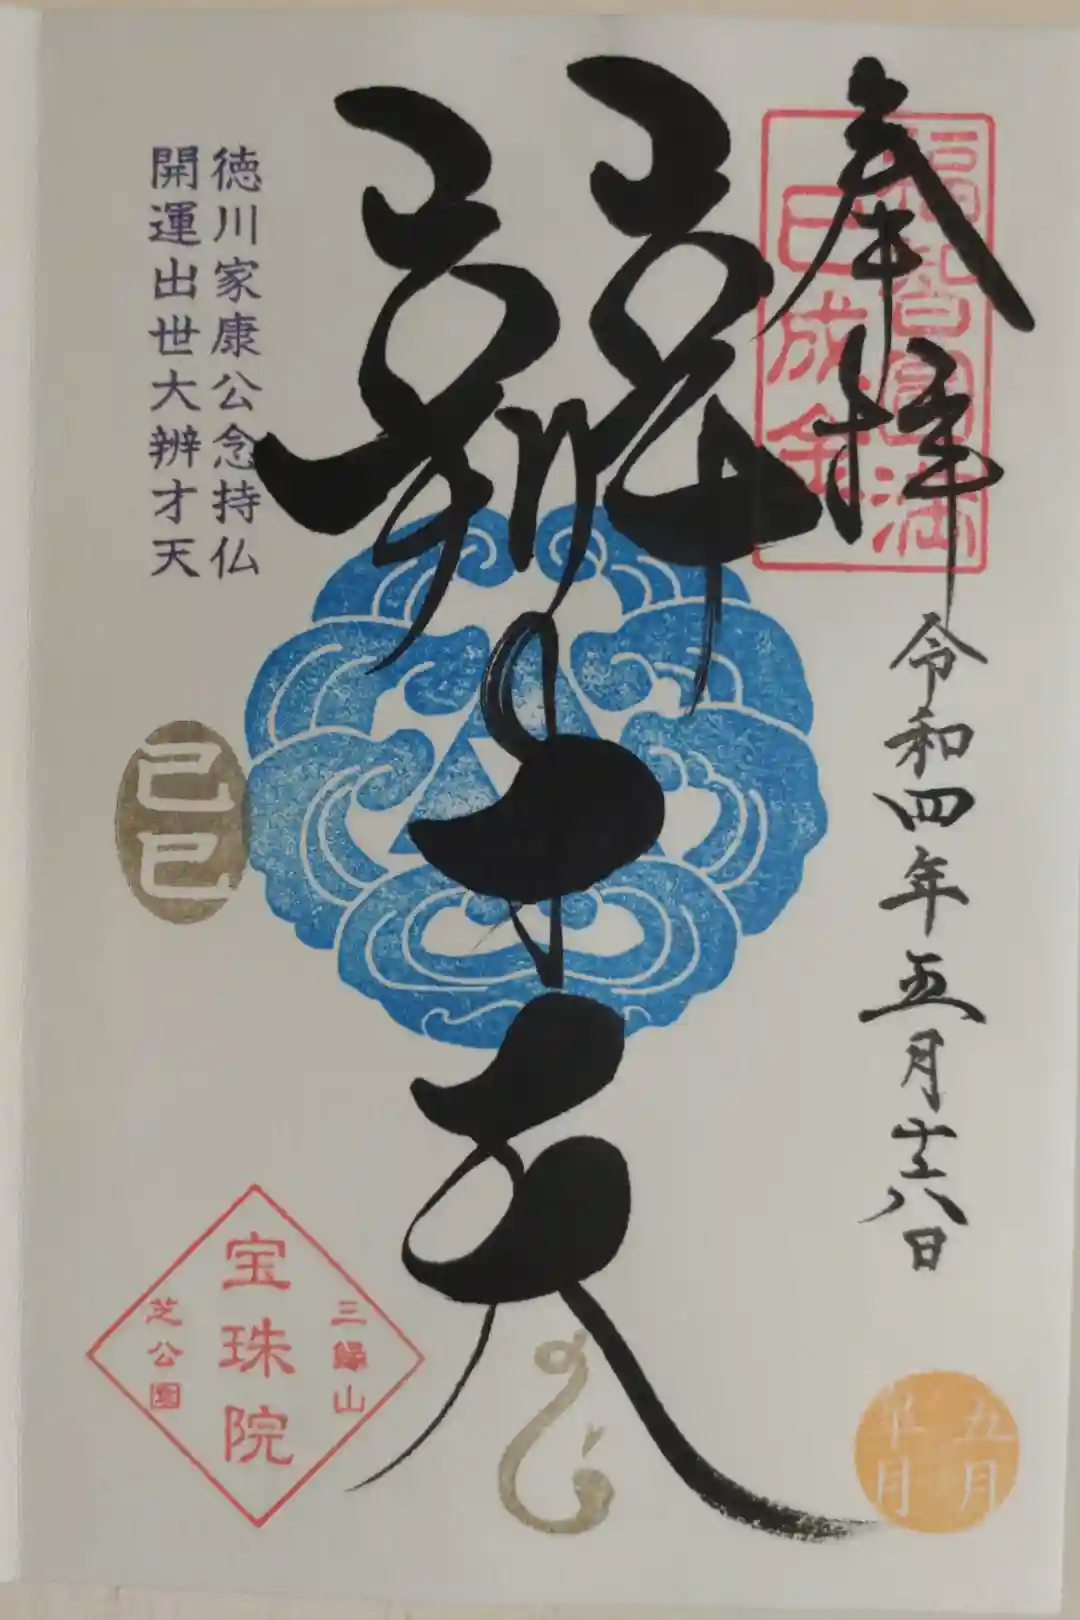 奉拝
福智円満
巳成金
令和四年五月十六日
五月
皐月
辨才天
徳川家康公念持仏
開運出世大辨才天
己巳
三縁山
宝珠院
芝公園